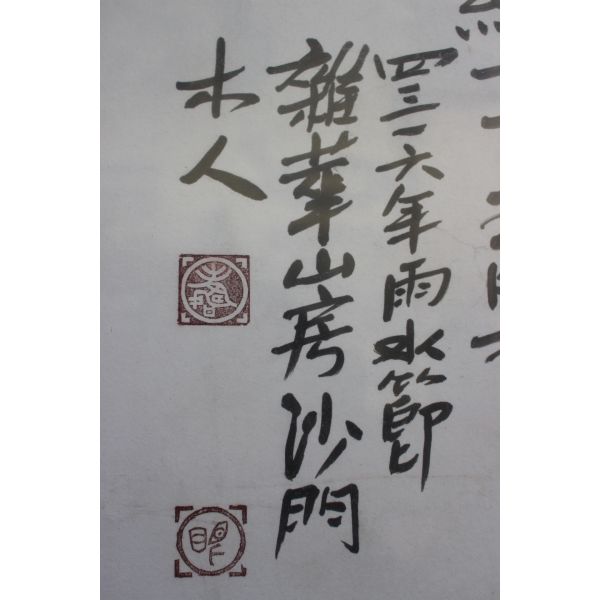 四三一六年雨水節
雜華山房沙門
木人